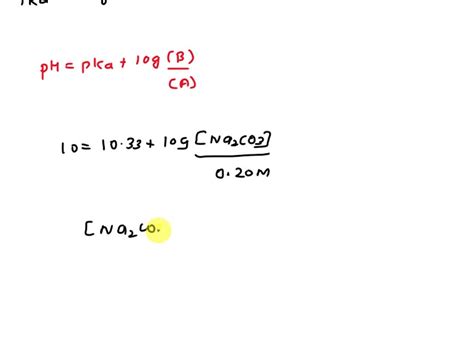 pka
pH = pka + log (B)
(A)
10 = 10.33 + log [Na₂CO₃]
0.20M
[Na₂CO.